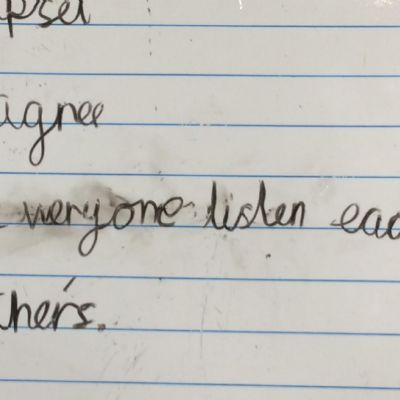 upset
agree
everyone listen eac
ther's.